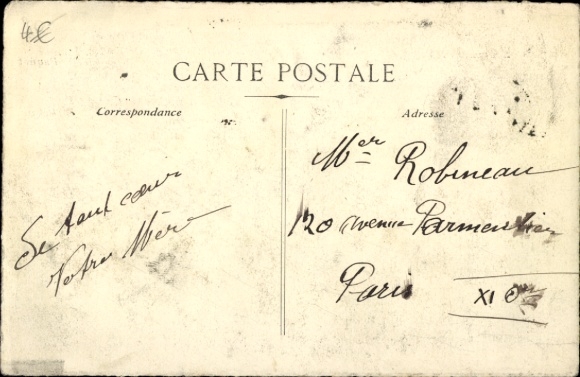 4€
CARTE POSTALE
Correspondance
Adresse
De tout cœur
Votre Mère
Mer Robineau
120 avenue Parmentier
Paris
XI